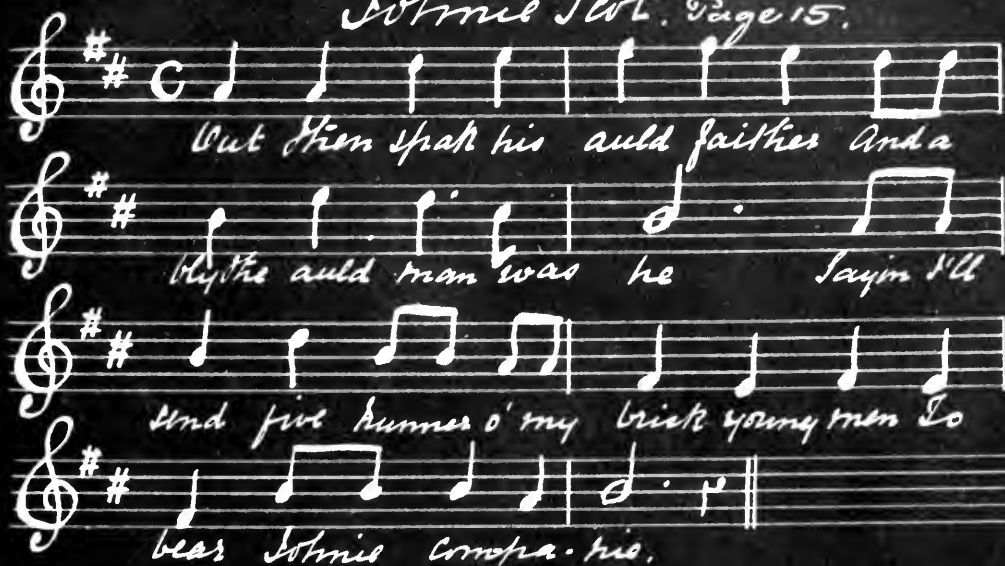 Johnie Scot. Page 15.
Out then spak his auld faither And a
blythe auld man was he Sayin I'll
send five hunner o' my brisk young men To
bear Johnie compa-nie.